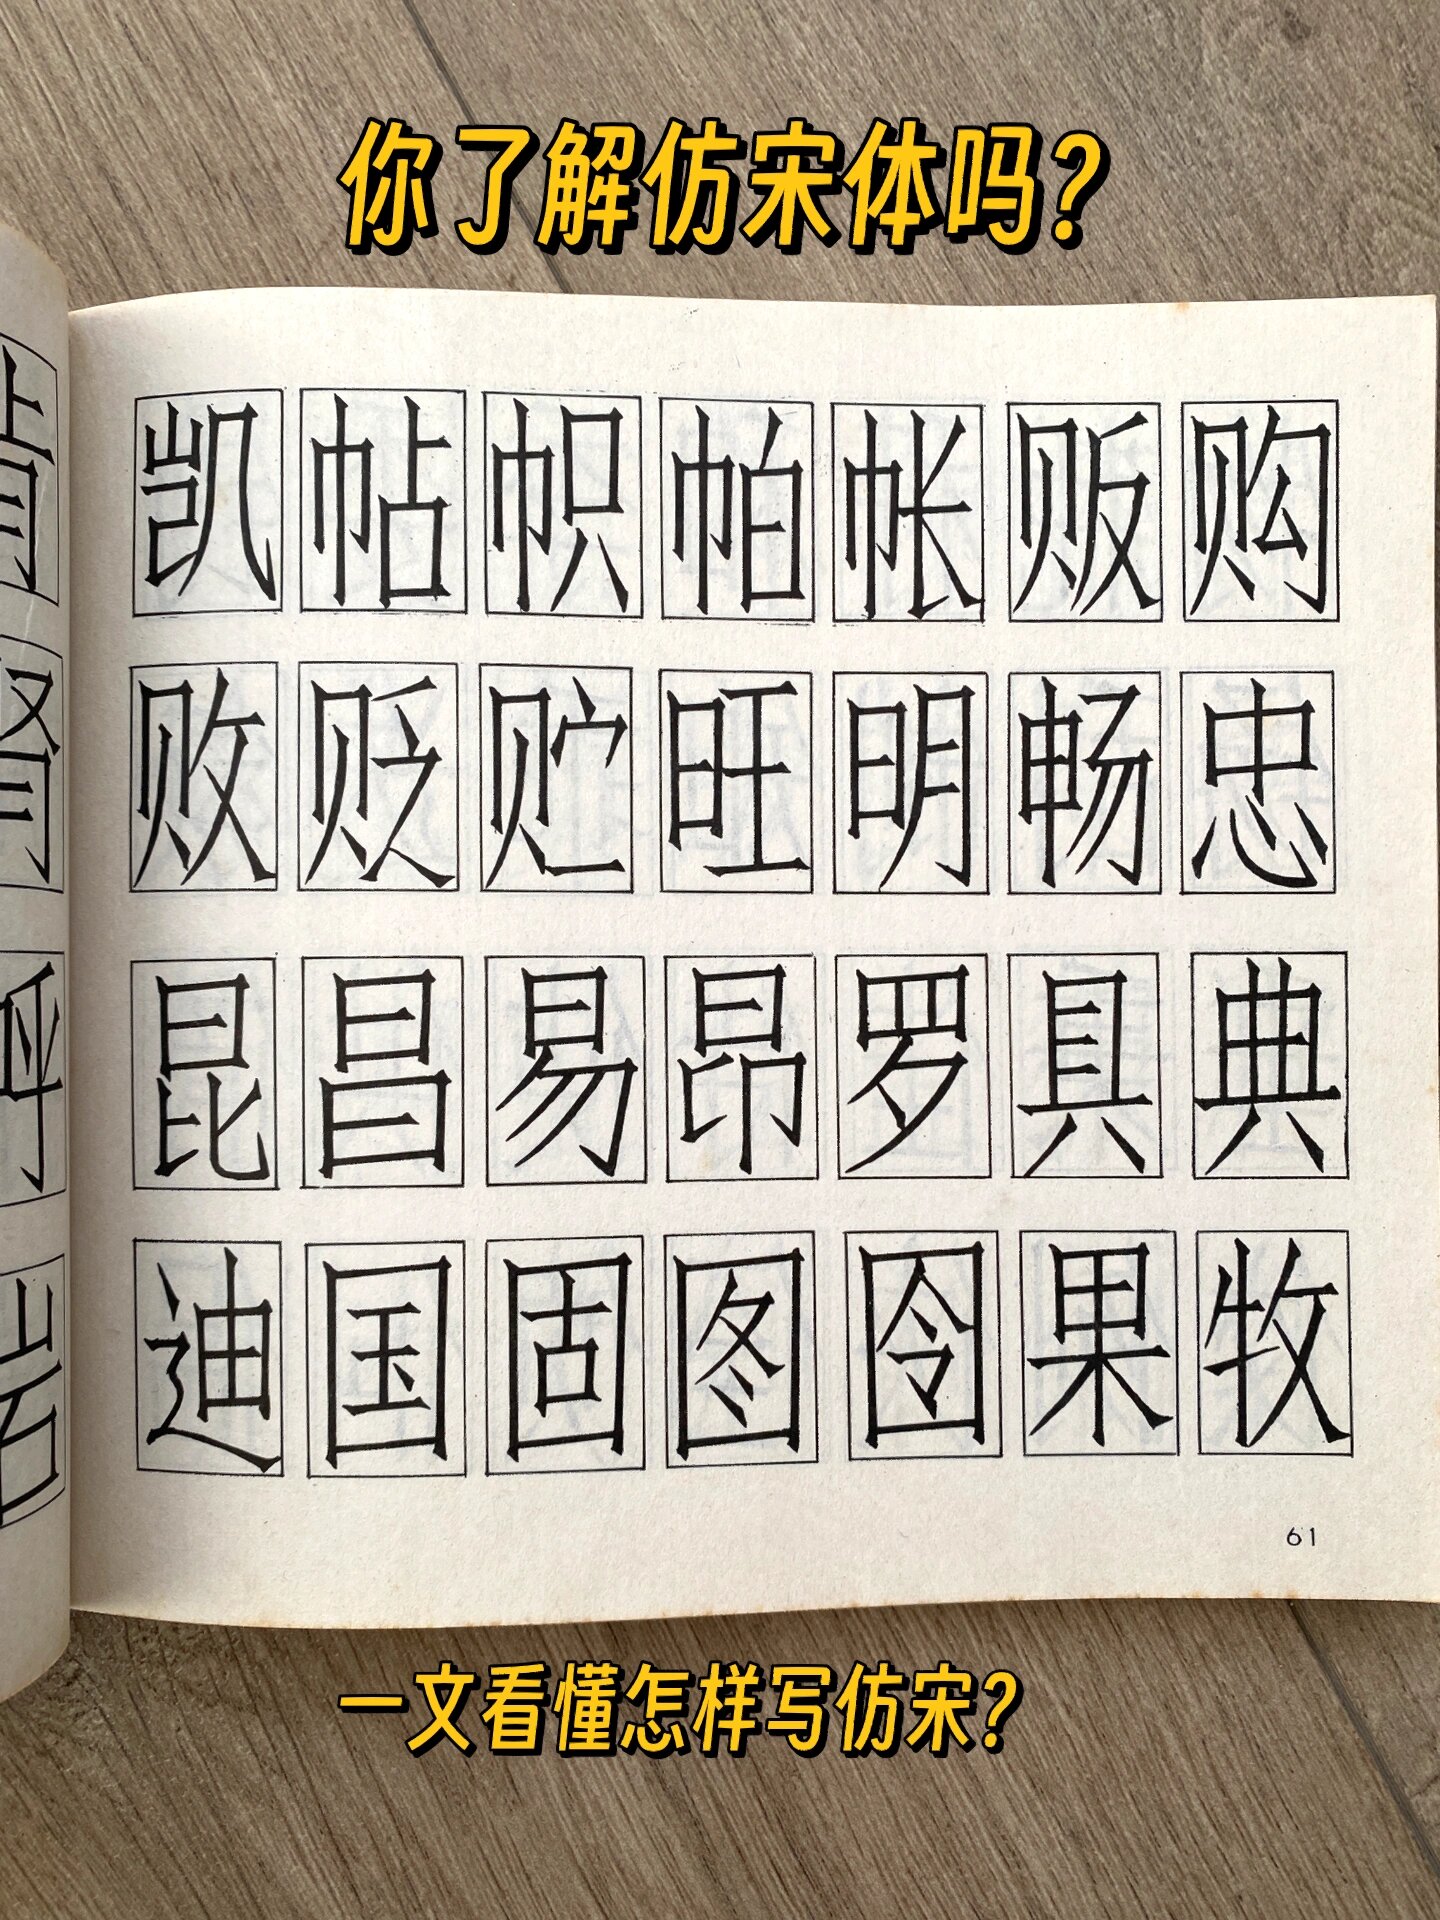 你了解仿宋体吗?
凯帖帜帕帐贩购
败贬贮旺明畅忠
昆昌易昂罗具典
迪国固图囹果牧
肯
肾
呼
岩
61
一文看懂怎样写仿宋?